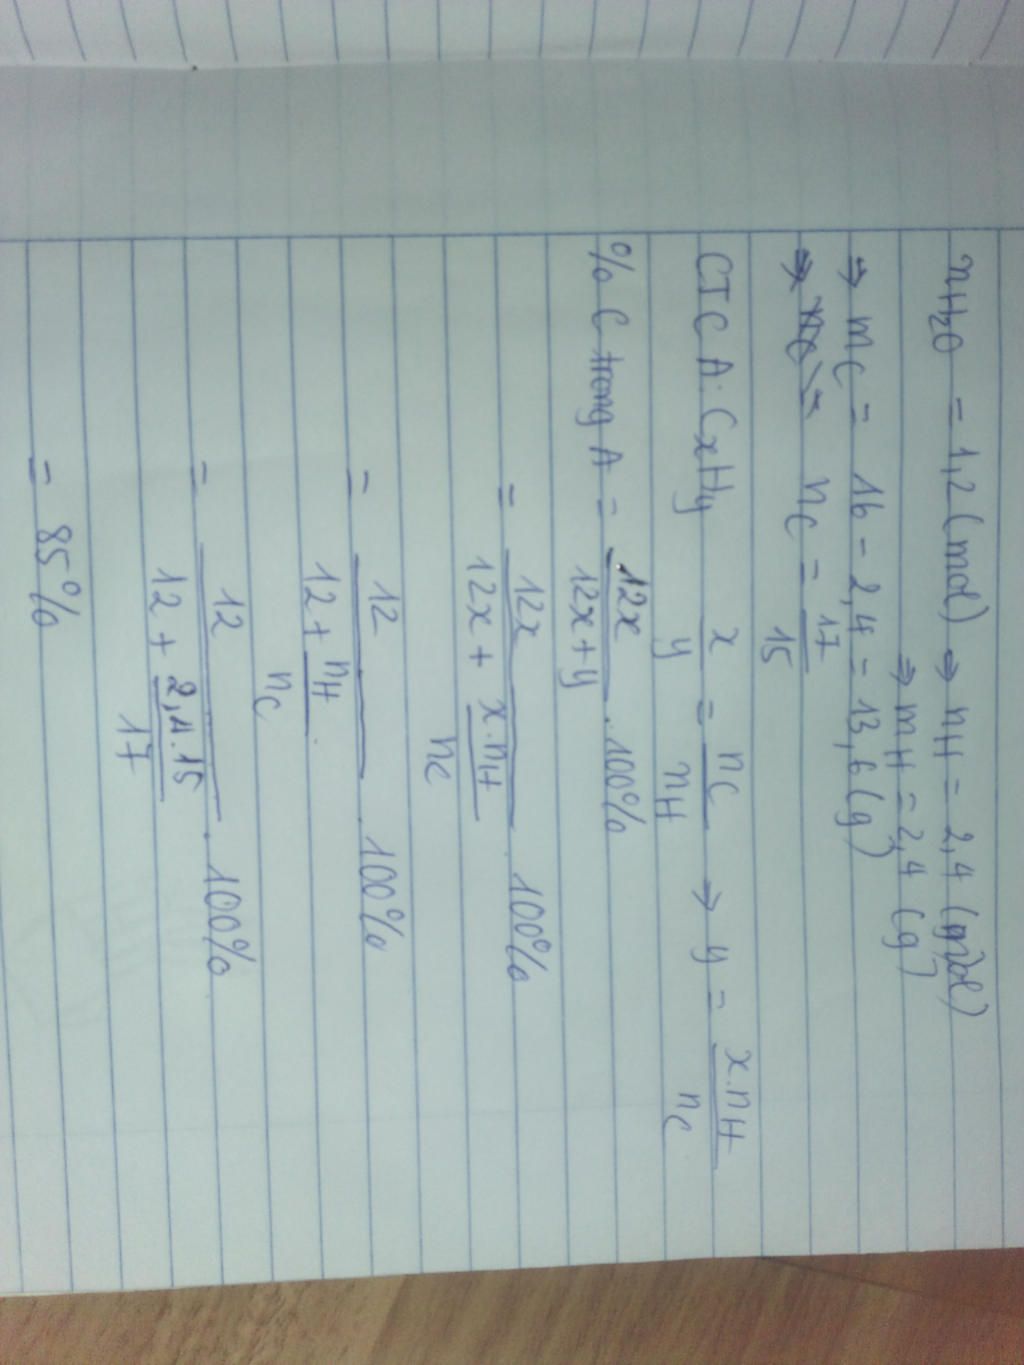 nH2O = 1,2 (mol) → nH = 2,4 (mol)
⇒ mH = 2,4 (g)
⇒ mC = 16 - 2,4 = 13,6 (g)
⇒ nC = 17/15
CTC A: CxHy x/y = nC/nH → y = x.nH/nC
% C trong A = 12x/(12x+y) . 100%
= 12x/(12x + x.nH/nC) . 100%
= 12/(12 + nH/nC) . 100%
= 12/(12 + 2,4.15/17) . 100%
= 85%